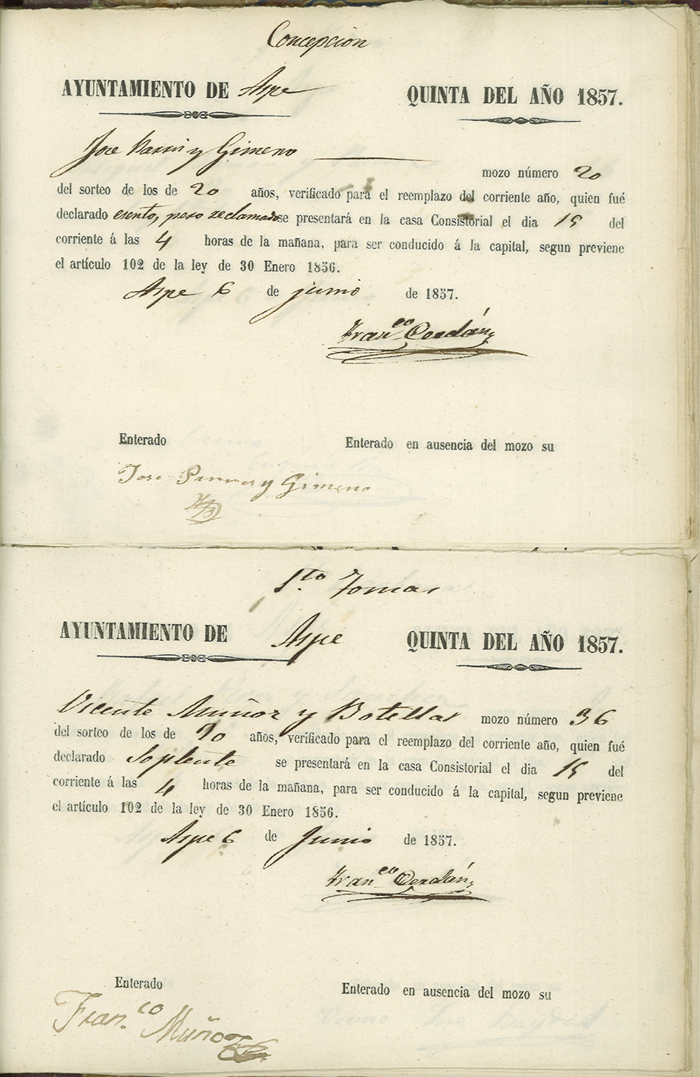 Concepcion
AYUNTAMIENTO DE Aspe QUINTA DEL AÑO 1857.
Jose y Gimeno mozo número 20
del sorteo de los de 20 años, verificado para el reemplazo del corriente año, quien fué
declarado esento, pero reclamado se presentará en la casa Consistorial el dia 15 del
corriente á las 4 horas de la mañana, para ser conducido á la capital, segun previene
el artículo 102 de la ley de 30 Enero 1856.
Aspe 6 de junio de 1857.
Fran.co Cerdán
Enterado Enterado en ausencia del mozo su
Jose y Gimeno
S.to Tomas
AYUNTAMIENTO DE Aspe QUINTA DEL AÑO 1857.
Vicente Muñoz y Botellas mozo número 36
del sorteo de los de 20 años, verificado para el reemplazo del corriente año, quien fué
declarado Soplente se presentará en la casa Consistorial el dia 15 del
corriente á las 4 horas de la mañana, para ser conducido á la capital, segun previene
el artículo 102 de la ley de 30 Enero 1856.
Aspe 6 de Junio de 1857.
Fran.co Cerdán
Enterado Enterado en ausencia del mozo su
Fran.co Muñoz